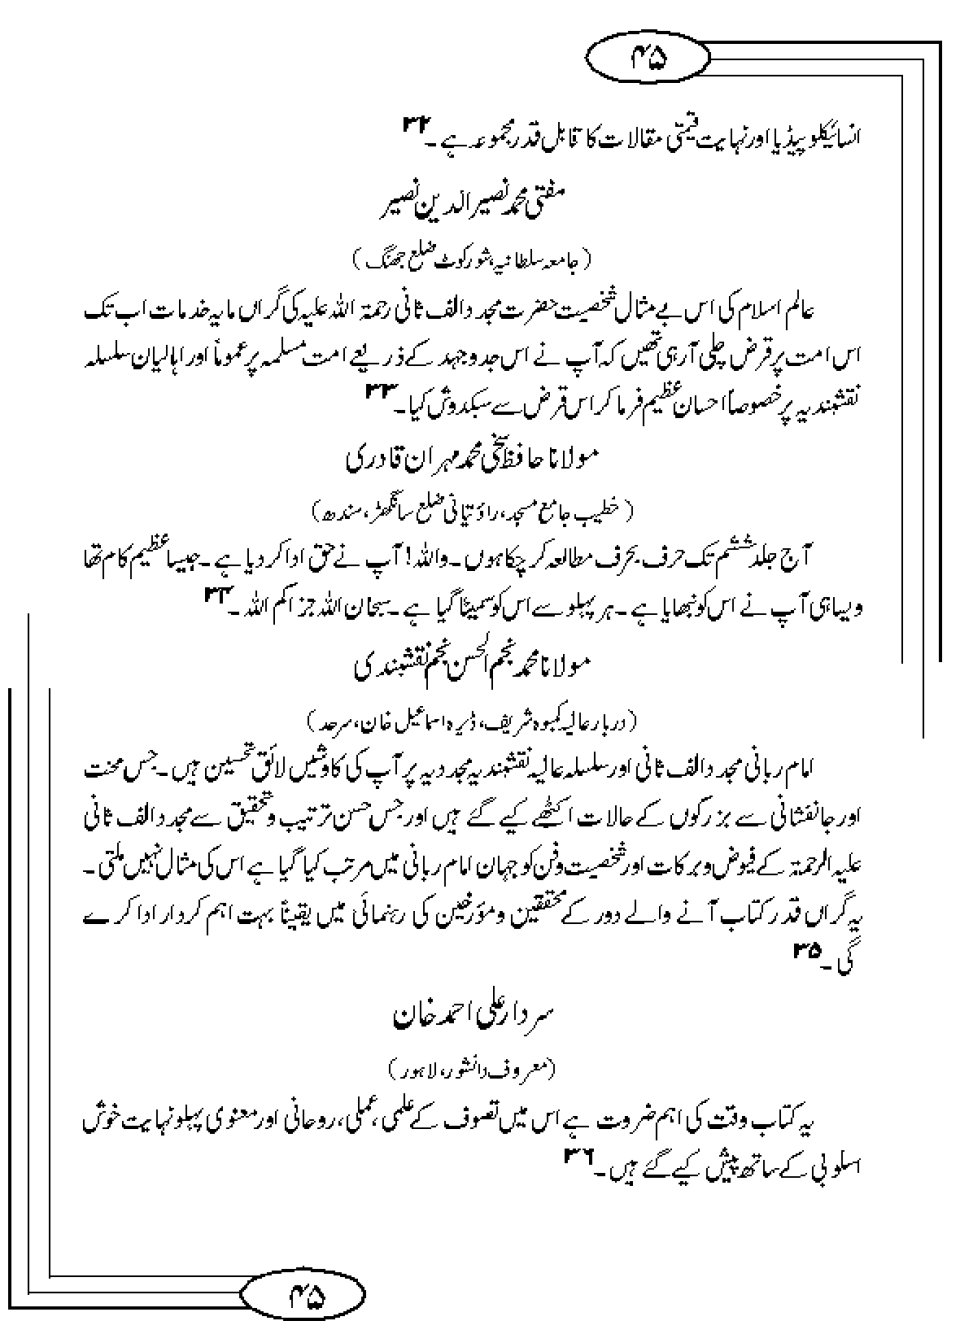 ۴۵
انسائیکلوپیڈیا اور نہایت قیمتی مقالات کا قابل قدر مجموعہ ہے ۔۳۲
مفتی محمد نصیر الدین نصیر
(جامعہ سلطانیہ، شورکوٹ ضلع جھنگ)
عالم اسلام کی اس بے مثال شخصیت حضرت مجدد الف ثانی رحمۃ اللہ علیہ کی گراں مایہ خدمات اب تک
اس امت پر قرض چلی آرہی تھیں کہ آپ نے اس جدوجہد کے ذریعے امت مسلمہ پر عموماً اور اہالیان سلسلہ
نقشبندیہ پر خصوصاً احسان عظیم فرما کر اس قرض سے سبکدوش کیا۔۳۳
مولانا حافظ سخی محمد مہران قادری
(خطیب جامع مسجد، راؤتیانی ضلع سانگھڑ، سندھ)
آج جلد ششم تک حرف بحرف مطالعہ کر چکا ہوں ۔ واللہ! آپ نے حق ادا کر دیا ہے ۔ جیسا عظیم کام تھا
ویسا ہی آپ نے اس کو نبھایا ہے ۔ ہر پہلو سے اس کو سمیٹا گیا ہے ۔ سبحان اللہ جزاکم اللہ ۔۳۴
مولانا محمد نجم الحسن نجم نقشبندی
(دربار عالیہ کمبوہ شریف، ڈیرہ اسماعیل خان، سرحد)
امام ربانی مجدد الف ثانی اور سلسلہ عالیہ نقشبندیہ مجددیہ پر آپ کی کاوشیں لائق تحسین ہیں ۔ جس محنت
اور جانفشانی سے بزرگوں کے حالات اکٹھے کیے گئے ہیں اور جس حسن ترتیب و تحقیق سے مجدد الف ثانی
علیہ الرحمۃ کے فیوض و برکات اور شخصیت و فن کو جہان امام ربانی میں مرتب کیا گیا ہے اس کی مثال نہیں ملتی ۔
یہ گراں قدر کتاب آنے والے دور کے محققین و مؤرخین کی رہنمائی میں یقیناً بہت اہم کردار ادا کرے
گی ۔۳۵
سردار علی احمد خان
(معروف دانشور، لاہور)
یہ کتاب وقت کی اہم ضروت ہے اس میں تصوف کے علمی، عملی، روحانی اور معنوی پہلو نہایت خوش
اسلوبی کے ساتھ پیش کیے گئے ہیں ۔۳۶
۴۵